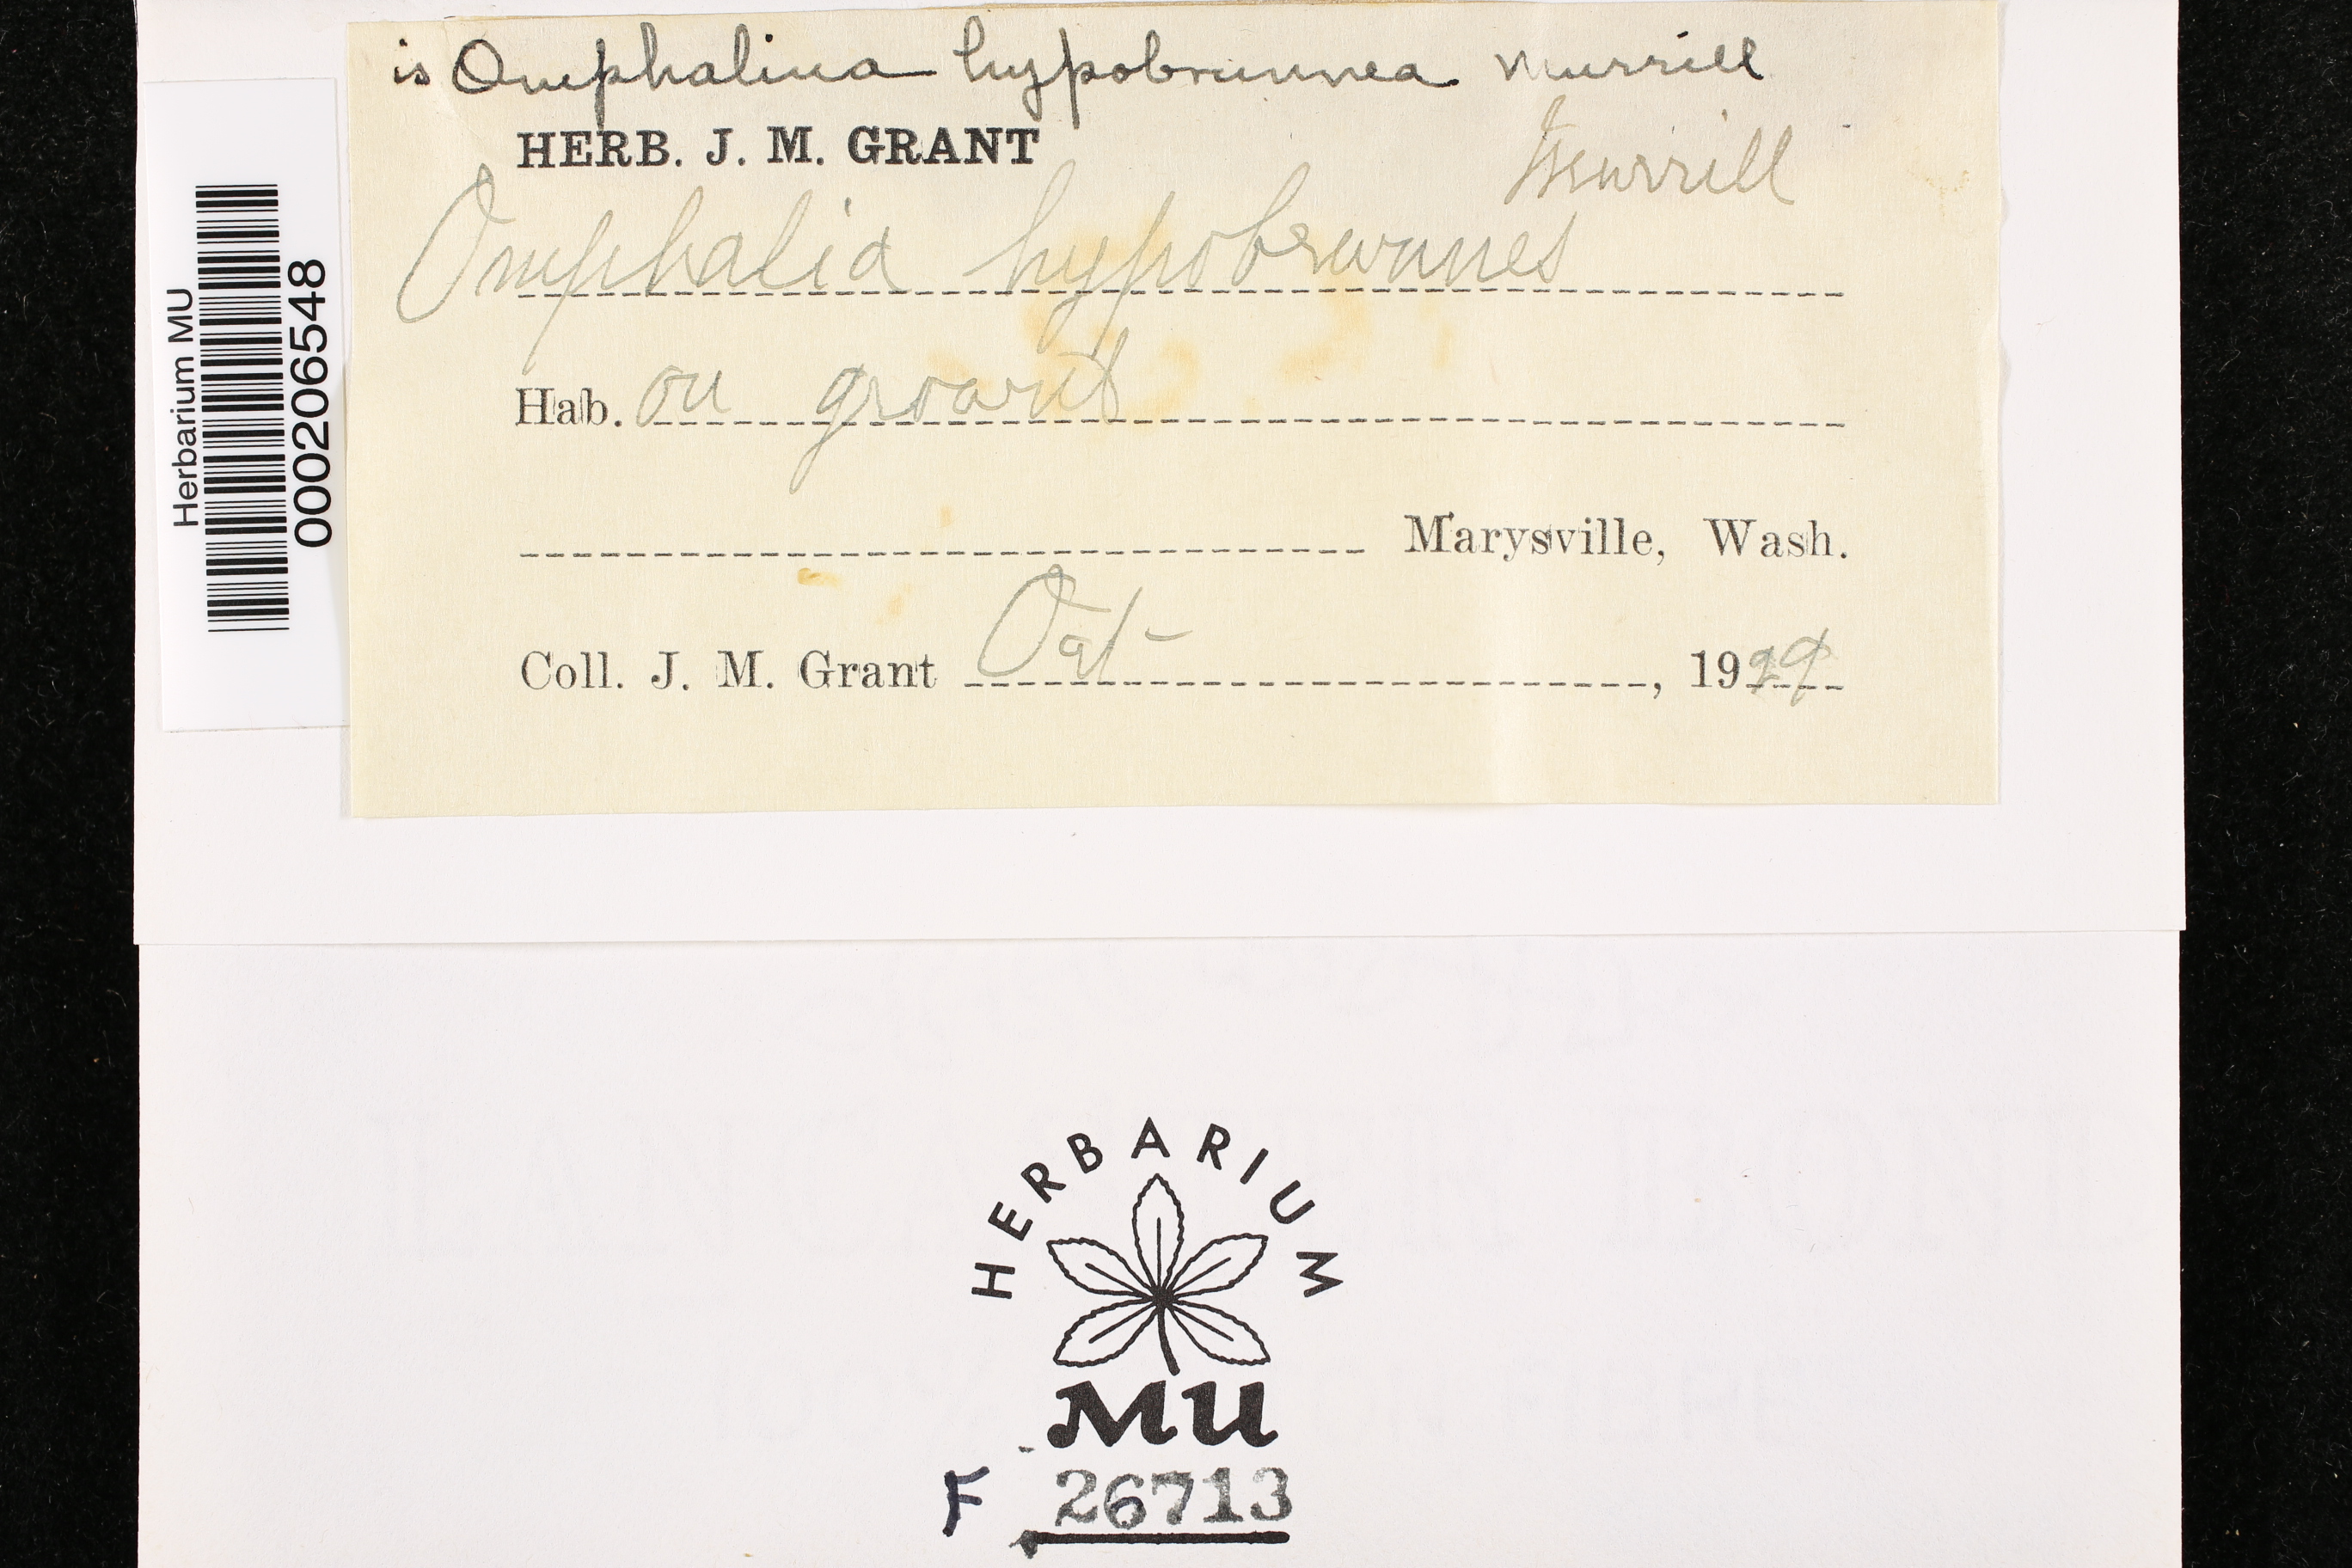 is Omphalina hypobrunnea Murrill
HERB. J. M. GRANT
Murrill
Omphalia hypobrunnea
Hab. on ground
Marysville, Wash.
Coll. J. M. Grant Oct- , 1929
Herbarium MU
000206548
HERBARIUM
MU
F 26713